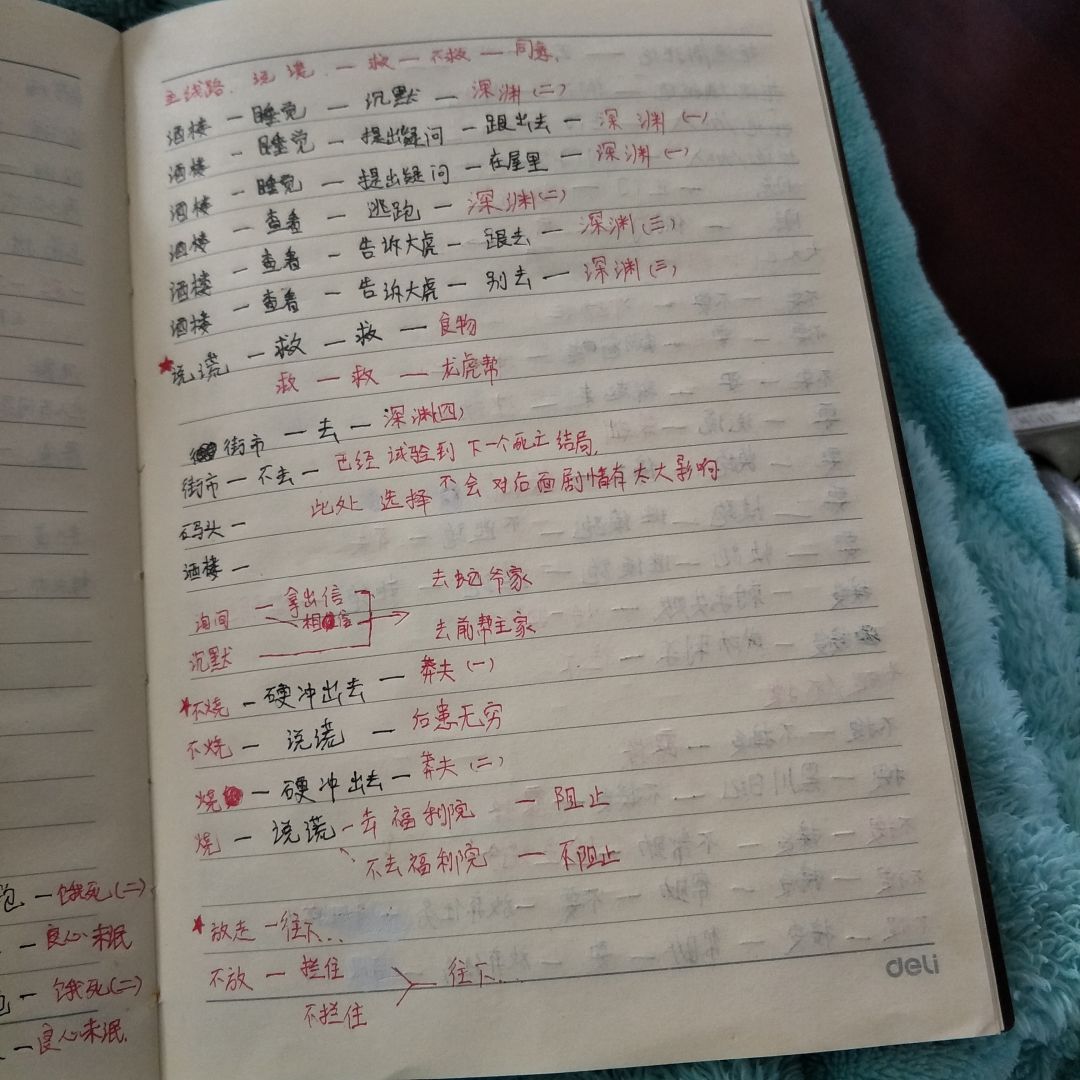 主线路. 说谎. — 救 — 不救 — 同意.
酒楼 — 睡觉 — 沉默 — 深渊(二)
酒楼 — 睡觉 — 提出疑问 — 跟出去 — 深渊(一)
酒楼 — 睡觉 — 提出疑问 — 在屋里 — 深渊(一)
酒楼 — 查看 — 逃跑 — 深渊(二)
酒楼 — 查看 — 告诉大虎 — 跟去 — 深渊(三)
酒楼 — 查看 — 告诉大虎 — 别去 — 深渊(三)
★说谎 — 救 — 救 — 食物
救 — 救 — 龙虎帮
街市 — 去 — 深渊(四)
街市 — 不去 — 已经试验到下一个死亡结局,
此处选择不会对后面剧情有太大影响
码头 —
酒楼 —
询问 — 拿出信
相信
沉默
去蛇爷家
去前帮主家
★不烧 — 硬冲出去 — 莽夫(一)
不烧 — 说谎 — 后患无穷
烧 — 硬冲出去 — 莽夫(二)
烧 — 说谎 — 去福利院 — 阻止
不去福利院 — 不阻止
★放走 — 往下...
不放 — 拦住
不拦住
往下...
deli
— 饿死(二)
— 良心未泯
— 饿死(二)
— 良心未泯.